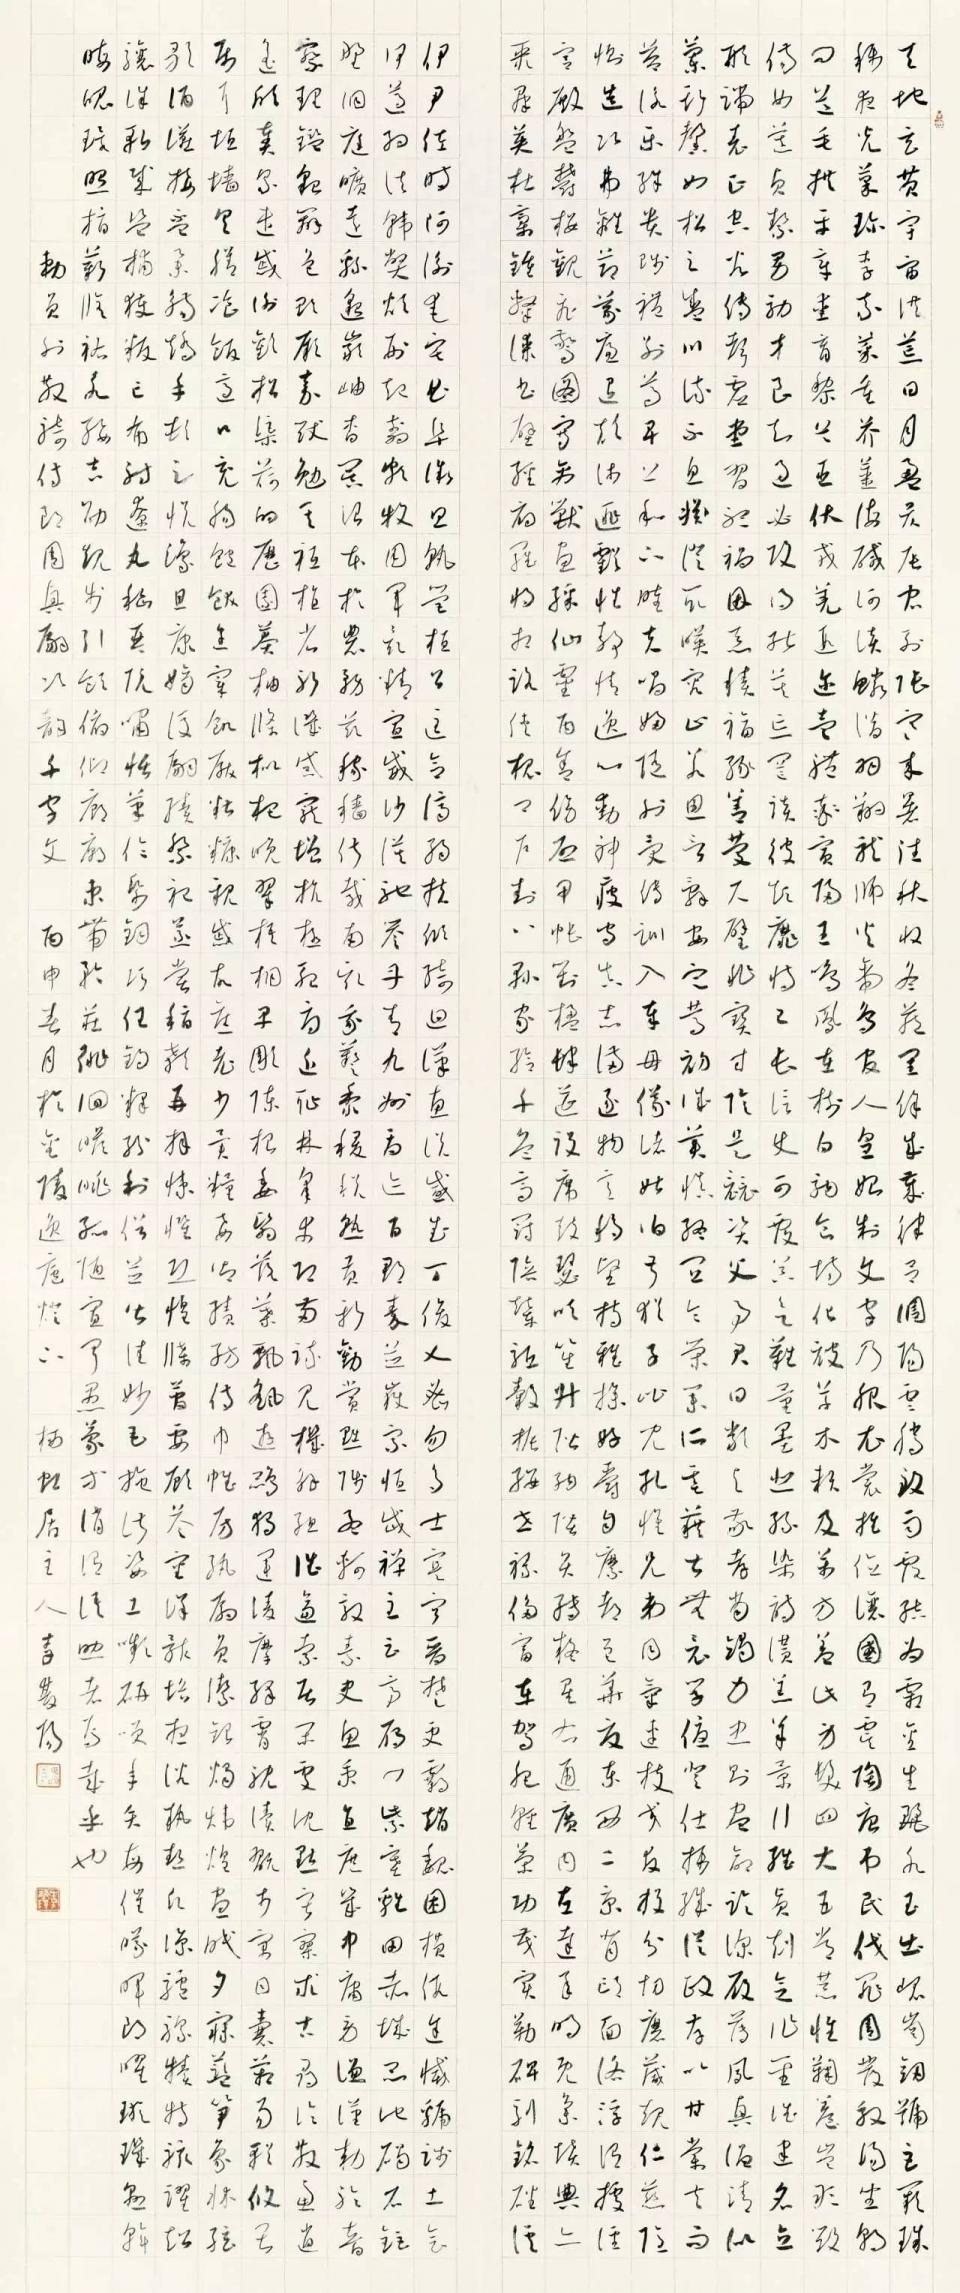 天地玄黄宇宙洪荒日月盈昃辰宿列張寒來暑往秋收冬藏閏餘成歲律吕調陽雲騰致雨露結為霜金生麗水玉出崑崗劍號巨闕珠
稱夜光菓珍李柰菜重芥薑海鹹河淡鱗潛羽翔龍師火帝鳥官人皇始制文字乃服衣裳推位讓國有虞陶唐弔民伐罪周發殷湯坐朝
問道垂拱平章愛育黎首臣伏戎羌遐邇壹體率賓歸王鳴鳳在樹白駒食場化被草木賴及萬方蓋此身髮四大五常恭惟鞠養豈敢毀
傷女慕貞潔男效才良知過必改得能莫忘罔談彼短靡恃己長信使可覆器欲難量墨悲絲染詩讚羔羊景行維賢剋念作聖德建名立
形端表正空谷傳聲虛堂習聽禍因惡積福緣善慶尺璧非寶寸陰是競資父事君曰嚴與敬孝當竭力忠則盡命臨深履薄夙興温清似
蘭斯馨如松之盛川流不息淵澄取映容止若思言辭安定篤初誠美慎終宜令榮業所基籍甚無竟學優登仕攝職從政存以甘棠去而
益詠樂殊貴賤禮别尊卑上和下睦夫唱婦隨外受傅訓入奉母儀諸姑伯叔猶子比兒孔懷兄弟同氣連枝交友投分切磨箴規仁慈隱
惻造次弗離節義廉退顛沛匪虧性靜情逸心動神疲守真志滿逐物意移堅持雅操好爵自縻都邑華夏東西二京背邙面洛浮渭據涇
宫殿盤鬱樓觀飛驚圖寫禽獸畫綵仙靈丙舍傍啟甲帳對楹肆筵設席鼓瑟吹笙升階納陛弁轉疑星右通廣内左達承明既集墳典亦
聚群英杜稾鍾隸漆書壁經府羅將相路俠槐卿户封八縣家給千兵高冠陪輦驅轂振纓世禄侈富車駕肥輕策功茂實勒碑刻銘磻溪
伊尹佐時阿衡奄宅曲阜微旦孰營桓公匡合濟弱扶傾綺迴漢惠説感武丁俊乂密勿多士寔寧晉楚更霸趙魏困横假途滅虢踐土會
何遵約法韓弊煩刑起翦頗牧用軍最精宣威沙漠馳譽丹青九州禹迹百郡秦并嶽宗恒岱禪主云亭雁門紫塞雞田赤城昆池碣石鉅
野洞庭曠遠綿邈巖岫杳冥治本於農務兹稼穡俶載南畝我藝黍稷税熟貢新勸賞黜陟孟軻敦素史魚秉直庶幾中庸勞謙謹勑聆音
察理鑒貌辯色貽厥嘉猷勉其祗植省躬譏誡寵增抗極殆辱近恥林皋幸即兩疏見機解組誰逼索居閒處沉默寂寥求古尋論散慮逍
遥欣奏累遣慼謝歡招渠荷的歷園莽抽條枇杷晚翠梧桐早彫陳根委翳落葉飄颻遊鵾獨運凌摩絳霄耽讀翫市寓目囊箱易輶攸畏
屬耳垣墻具膳飡飯適口充腸飽飫烹宰飢厭糟糠親戚故舊老少異糧妾御績紡侍巾帷房紈扇圓潔銀燭煒煌晝眠夕寐藍筍象牀絃
歌酒讌接杯舉觴矯手頓足悦豫且康嫡後嗣續祭祀蒸嘗稽顙再拜悚懼恐惶牒簡要顧答審詳骸垢想浴執熱願涼驢騾犢特駭躍超
驤誅斬賊盗捕獲叛亡布射遼丸嵇琴阮嘯恬筆倫紙鈞巧任釣釋紛利俗並皆佳妙毛施淑姿工嚬妍笑年矢每催曦暉朗曜璇璣懸斡
晦魄環照指薪修祜永綏吉劭矩步引領俯仰廊廟束帶矜莊徘徊瞻眺孤陋寡聞愚蒙等誚謂語助者焉哉乎也
勅員外散騎侍郎周興嗣次韻千字文 丙申春月於金陵逸廬燈下 栖霞居主人李雙陽